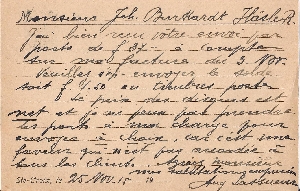 Monsieur Joh. Burkhardt Häsler
J'ai bien reçu votre envoi par
poste de f 37.- à compte
sur ma facture du 3 Nov.
Veuillez svp. envoyer le solde
soit f 1.50 en timbres poste
le prix des disques est
net et je ne peux pas prendre
les ports à ma charge pour
envoyer à choix, car c'est une
faveur qui n'est pas accordée à
tous les clients. Agréez monsieur
mes salutations
Ste-Croix, le 25 Nov. 19